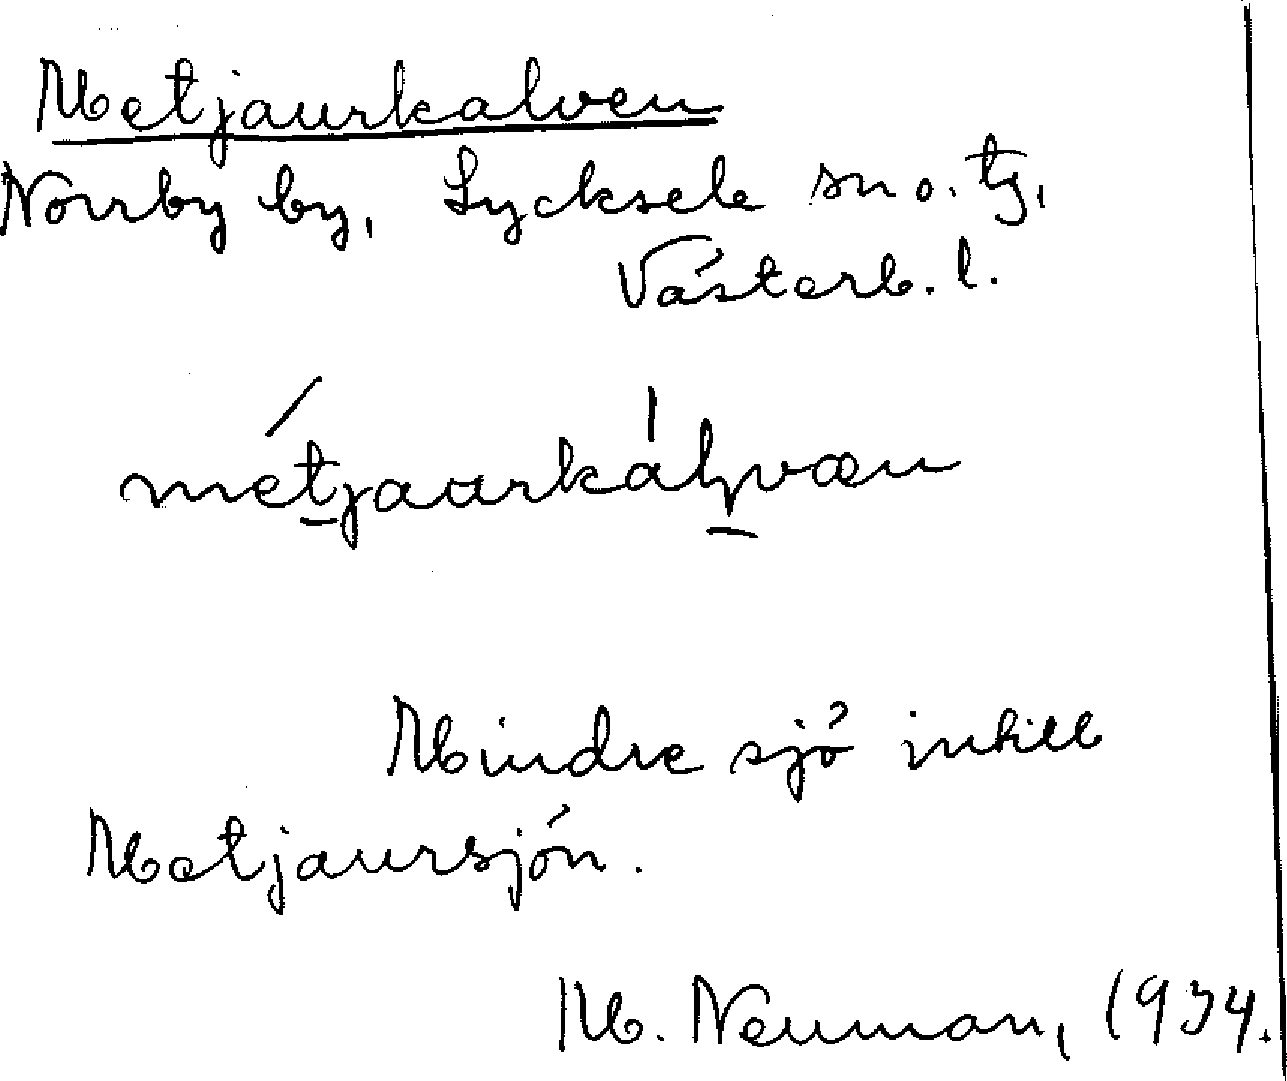 Metjaurkalven
Norrby by, Lycksele sn o. tg,
Västerb. l.
métjaurkálvæn
Mindre sjö intill
Metjaursjön.
M. Neuman, 1934.